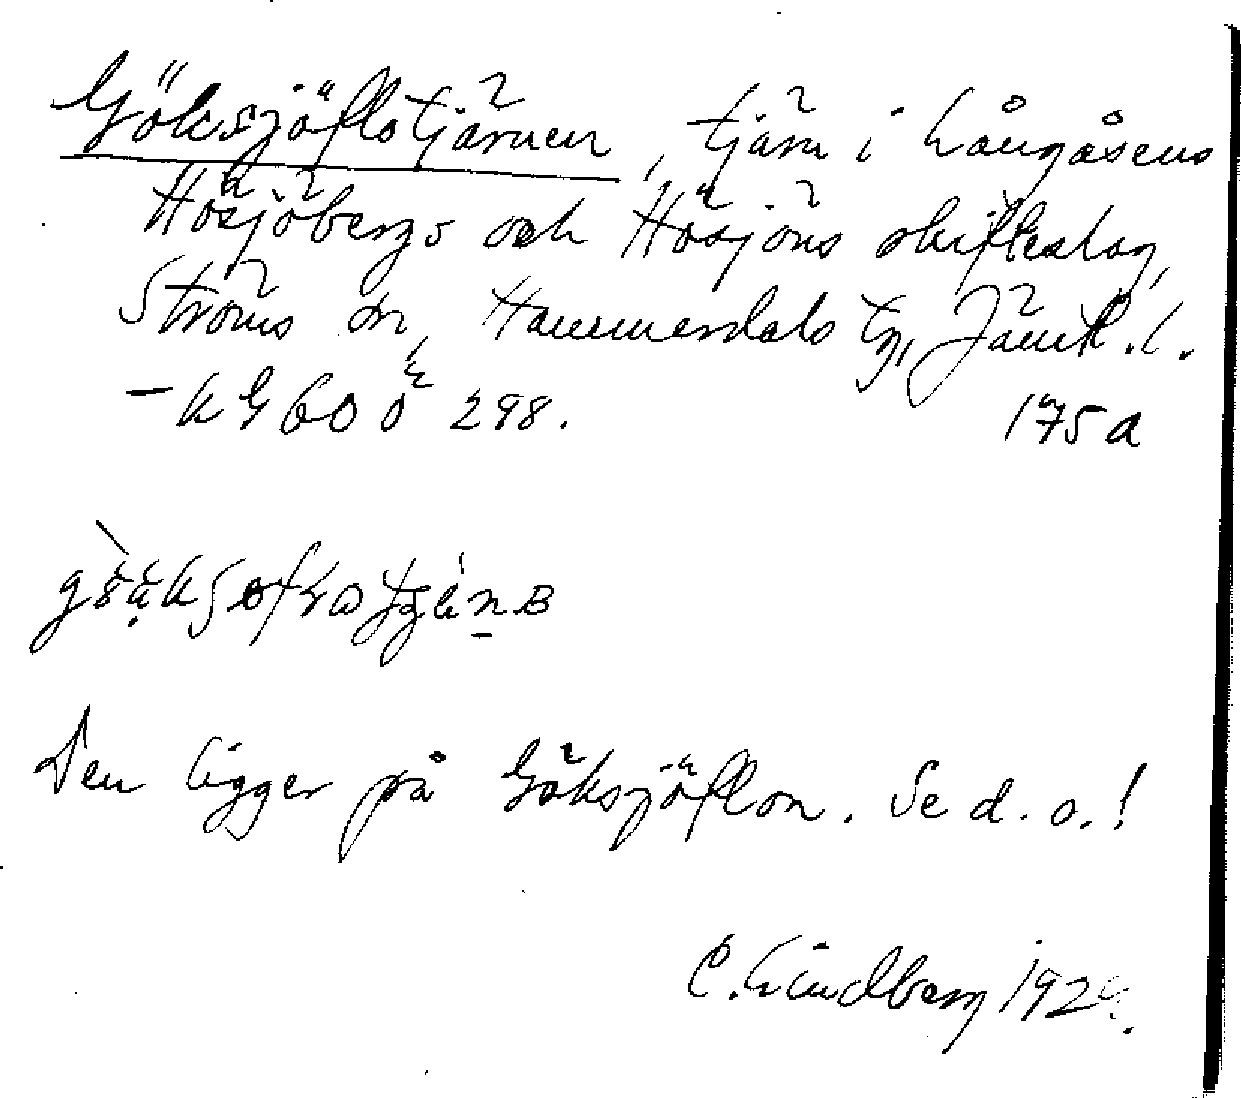 Göksjöflotjärnen, tjärn i Långåsens
Hösjöbergs och Hösjöns skifteslag,
Ströms sn, Hammerdals tg, Jämtl. l.
– k G 60 ö 298. 175a
Den ligger på Göksjöflon. Se d. o.!
C. Lindberg